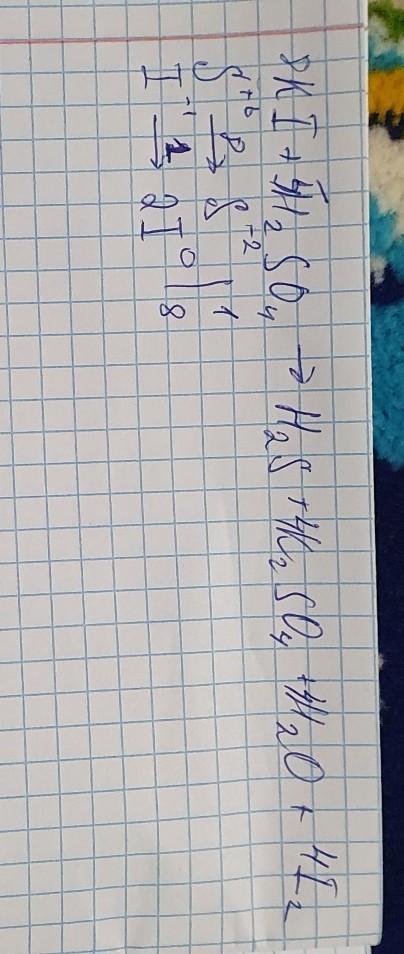 8KI + 5H₂SO₄ → H₂S + 4K₂SO₄ + 4H₂O + 4I₂
S⁺⁶ 8→ S⁺² | 1
I⁻¹ 1→ 2I⁰ | 8